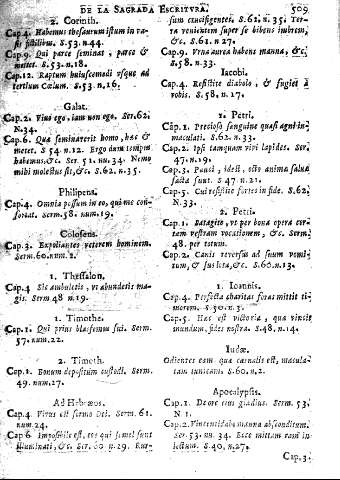 DE LA SAGRADA ESCRITVRA. 509
2. Corinth.
Cap.4. Habemus thesaurum istum in va-
sis fictilibus. S.53. n.44.
Cap.9. Qui parce seminat, parce &
metet. S.53. n.18.
Cap.12. Raptum huiuscemodi vsque ad
tertium Cœlum. S.53. n.16.
Galat.
Cap.2. Viuo ego, iam non ego. Ser.62.
N.34.
Cap.6. Quæ seminauerit homo, hæc &
metet. S 54. n.12. Ergo dum tempus
habemus, &c. Ser. 51. nu. 34. Nemo
mihi molestus sit, &c. S.62. n. 35.
Philipens.
Cap.4. Omnia possum in eo, qui me con-
fortat. Serm.58. num.19.
Colosens.
Cap.3. Expoliantes veterem hominem.
Serm.60. num.2.
1. Thessalon.
Cap.4 Sic ambuletis, vt abundetis ma-
gis. Serm 48 n.19.
1. Timothe.
Cap.1. Qui prius blasfemus fui. Serm.
57. num.22.
2. Timoth.
Cap.1. Bonum depositum custodi. Serm.
49. num.27.
Ad Hebræos.
Cap.4. Viuus est sermo Dei. Serm.61.
num.24.
Cap 6. Impossibile est, eos qui semel sunt
illuminati, &c. Ser. 60 n. 29. Rur-
sum crucifigentes. S.62. n. 35. Ter-
ra venientem super se bibens imbrem,
&c. S.61. n 27.
Cap.9. Vrna aurea habens manna, &c.
S.58. n.33.
Iacobi.
Cap.4. Resistite diabolo, & fugiet à
vobis. S.58. n.27.
1. Petri.
Cap.1. Pretioso sanguine quasi agni im-
maculati. S.62. n.33.
Cap.2. Ipsi tamquam viui lapides. Ser.
47. n.19.
Cap.3. Pauci, idest, octo animæ saluæ
factæ sunt. S 47. n 21.
Cap.5. Cui resistite fortes in fide. S.62.
N.33.
2. Petri.
Cap.1. Satagite, vt per bona opera cer-
tam vestram vocationem, &c. Serm.
48. per totum.
Cap.2. Canis reversus ad suum vomi-
tum, & sus lota, &c. S.60. n.13.
1. Ioannis.
Cap.4. Perfecta charitas foras mittit ti-
morem. S.50. n.3.
Cap.5. Hæc est victoria, quæ vincit
mundum, fides nostra. S.48. n.14.
Iudæ.
Odientes eam quæ carnalis est, macula-
tam tunicam. S.60. n.2.
Apocalypsis.
Cap.1. De ore eius gladius. Serm. 53.
N 1.
Cap.2. Vincenti dabo manna absconditum.
Ser.53. nu. 34. Ecce mittam eam in
lectum. S.40. n.27.
Cap.3.